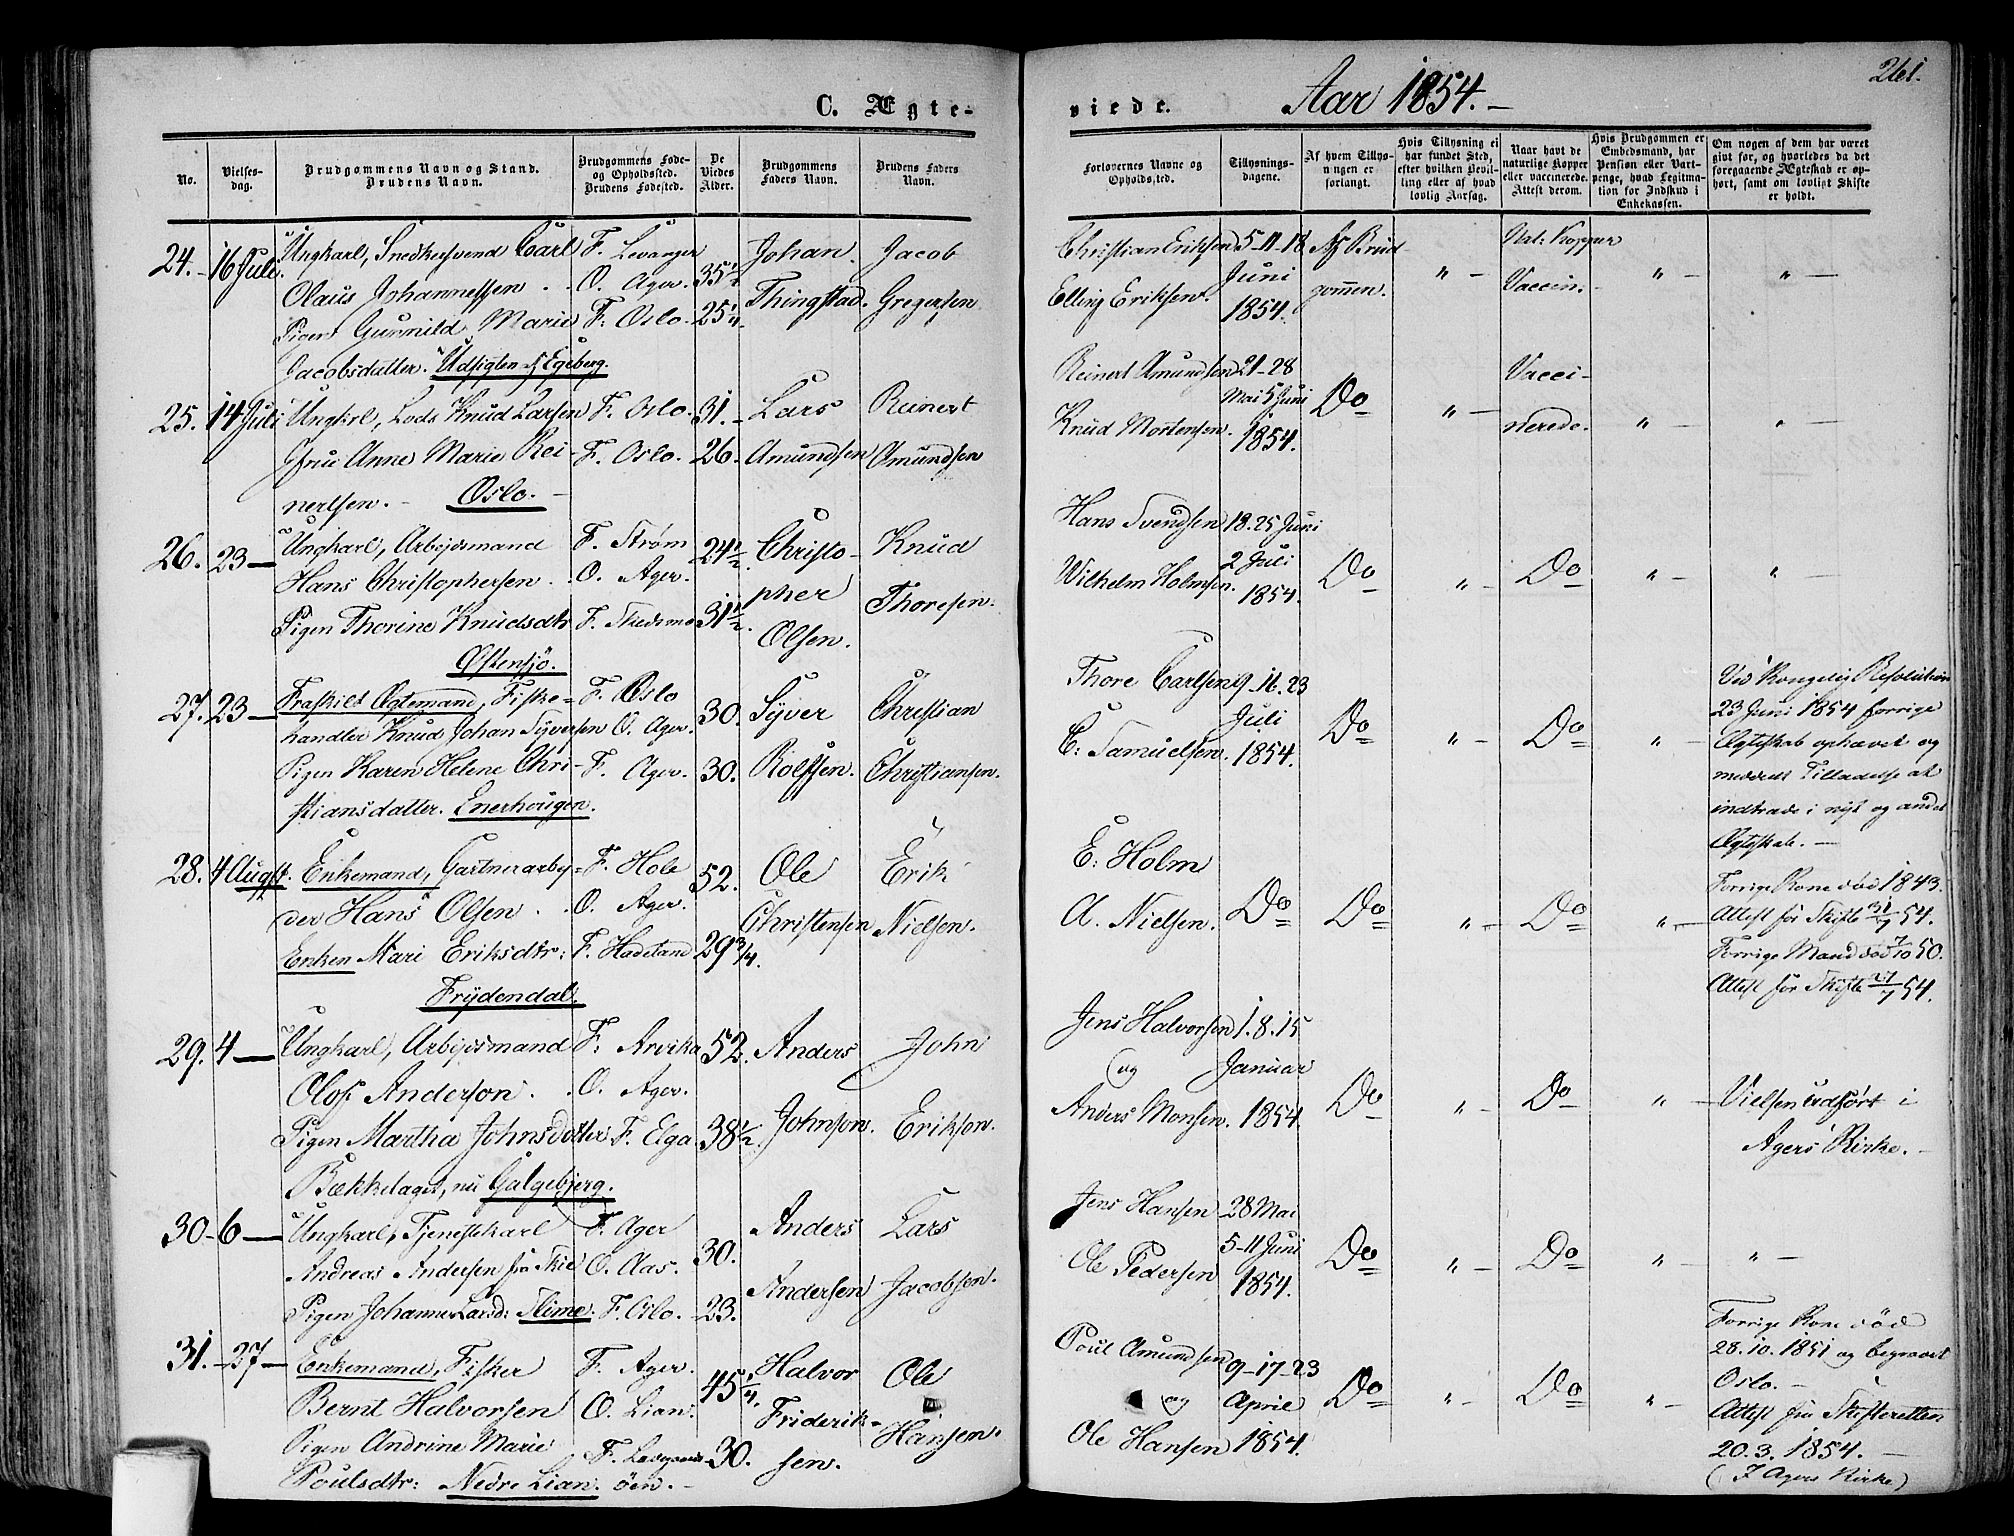 C. Ægteviede. Aar 1854. 261.
No. Vielsesdag. Brudgommens Navn og Stand. Brudens Navn. Brudgommens Føde- og Opholdsted. Brudens Fødested. De Viedes Alder. Brudgommens Faders Navn. Brudens Faders Navn. Forlovernes Navne og Opholdssted. Tillysningsdagene. Af hvem Tillysningen er forlangt. Hvis Tillysning ei har fundet Sted, efter hvilken Bevilling eller af hvad lovlig Aarsag. Naar havt de naturlige Kopper eller vaccinerede. Attest derom. Hvis Brudgommen er Embedsmand, har Pension eller Vartpenge, hvad Legitimation for Indskud i Enkekassen. Om nogen af dem har været gift før, og hvorledes da det foregaaende Ægteskab er ophørt, samt om lovligt Skifte er holdt.
24. 16 Juli. Ungkarl, Snedkersvend Carl F. Levanger 35½ Johan Jacob Christian Eriksen 5-11-18 Af Brud- Nat: Kopper
Olaus Johannessen. O. Ager. Thingstad. Gregersen Elling Eriksen. Juni 1854. gommen. " Vaccin. " "
Pigen Gunnild Marie F. Oslo. 25¼
Jacobsdatter. Udsigten af Egeberg.
25. 14 Juli Ungkrl, Lods Knud Larsen F. Oslo. 31. Lars Reinert Reinert Amundsen 21-28 Do " Vacci- " "
Jfru Anne Marie Rei- F. Oslo. 26. Amundsen Amundsen Knud Mortensen. Mai 5 Juni 1854. nerede.
nertsen. Oslo.
26. 23 Ungkarl, Arbejdsmand F. Strøm 24½ Christo- Knud Hans Svendsen 18. 25 Juni Do " Do " "
Hans Christophersen. O. Ager. pher Thoresen. Wilhelm Holmsen. 2 Juli 1854.
Pigen Thorine Knudsdtr F. Skedsmo 31½ Olsen.
Østensjö.
27. 23 Fraskilt Ægtemand, Fiske- F. Oslo 30. Syver Christian Thore Carlsen 9-16-23 Do " Do " Ved Kongelig Resolution
handler Knud Johan Syversen O. Ager. Rolfsen. Christiansen. C: Samuelsen. Juli 1854. 23 Juni 1854 forrige
Pigen Karen Helene Chri- F. Ager. 30. Ægteskab ophævet og
stiansdatter. Enerhougen. meddelt Tilladelse at
indtræde i nyt og andet
Ægteskab.
28. 4 Augst. Enkemand, Gartnerarbej- F. Hole 52. Ole Erik E: Holm Do Do " Do " Forrige Kone død 1843.
der Hans Olsen. O. Ager. Christensen Nielsen. A. Nielsen. Attest for Skifte 31/7 54.
Enken Mari Eriksdtr: F. Hadeland 29¾. Forrige Mand død 7/10 50.
Frydendal. Attest for Skifte 27/7 54.
29. 4 Ungkarl, Arbejdsmand F: Arvika 52. Anders John Jens Halvorsen 1. 8. 15 Do " Do " Vielsen udført i
Olof Anderson. O. Ager. Johnson. Erikson. og Januar Agers Kirke.
Pigen Martha Johnsdotter F. Elga 38½. Anders Monsen. 1854.
Bækkelaget, nu Galgebjerg.
30 6 Ungkarl, Tjenestekarl F. Ager 30. Anders Lars Jens Hansen 28 Mai Do " Do " "
Andreas Andersen fra Skie O. Aas. Andersen Jacobsen. Ole Pedersen 5-11 Juni 1854.
Pigen Johanne Larsd: Slime. F. Oslo. 23.
31. 27 Enkemand, Fisker F. Ager. 45¼. Halvor Ole Poul Amundsen 9-17-23 Do " Do " Forrige Kone død
Bernt Halvorsen O. Lian. Friderik- Hansen. og April 28. 10. 1851 og begravet
Pigen Andrine Marie F. 30. sen. Ole Hansen 1854. Oslo.
Poulsdtr: Nedre Lian. öen. Attest fra Skifteretten
20. 3. 1854.
(I Agers Kirke)